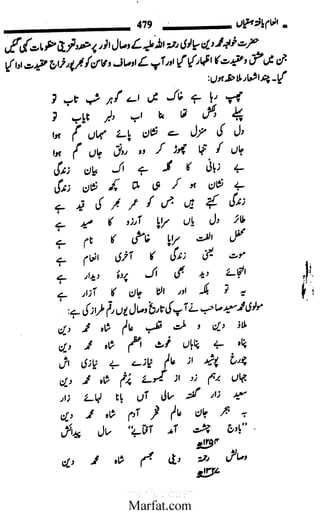 انعام یافتہ ہستیاں 479
حضرت خواجہ محمد دین سیالوی رحمۃ اللہ علیہ کے وصال انور پر متعدد تعزیتی منظومات کہی گئیں
جن میں عشق و عقیدت کا اظہار کیا گیا اور آپ کے اوصاف و محاسن کو بھرپور خراج عقیدت ادا کیا
گیا۔ چند اشعار ملاحظہ ہوں:
چھپ رہا ہے خاک میں اے گوہر شب تاب تو
پہلے دلکش تھا بنا اب دلبر نایاب تو
دل کی منزل بے نشان پائے مہماں گم ہوا
جاں کو تنہا چھوڑ کر وہ رونق جاں گم ہوا
بے زبانی کا گلہ ہے اک بیان زندگی
بے نشان ہو کر ہی ملتا کچھ نشان زندگی
زندگی کہتے ہیں جس کو عمر بھر کی قید ہے
طائر دل یاں سراپا آرزو کا صید ہے
محفل الفت سراپا خامشی کا نام ہے
موت یعنی زندگی کا آخری انعام ہے
التجائے دید بھی اک پردۂ دیدار ہے
یہ تو بلکہ اور الٹا جان کا آزار ہے
مولوی محمد سعید صاحب نے آپ کی تاریخ وصال یوں رقم طراز کی ہے:
ملاذ دین و ملت قطب عالم شاہ محمد دین
پناہ بے پناہاں غوث اعظم شاہ محمد دین
چو رخ پوشید از عالم نیازے بے نیازی اش
جہاں برہم زد از گیسوئے پرخم شاہ محمد دین
سعید زار گفتہ سالی آں بانا لہائے زار
بہ ہجر جان عالم فخر آدم شاہ محمد دین
"باوج چشت آمد آفتابے" سال پیدائش
۱۲۵۳ھ
وصالش رحمۃ دینی مجسم شاہ محمد دین
۱۳۲۷ھ
Marfat.com